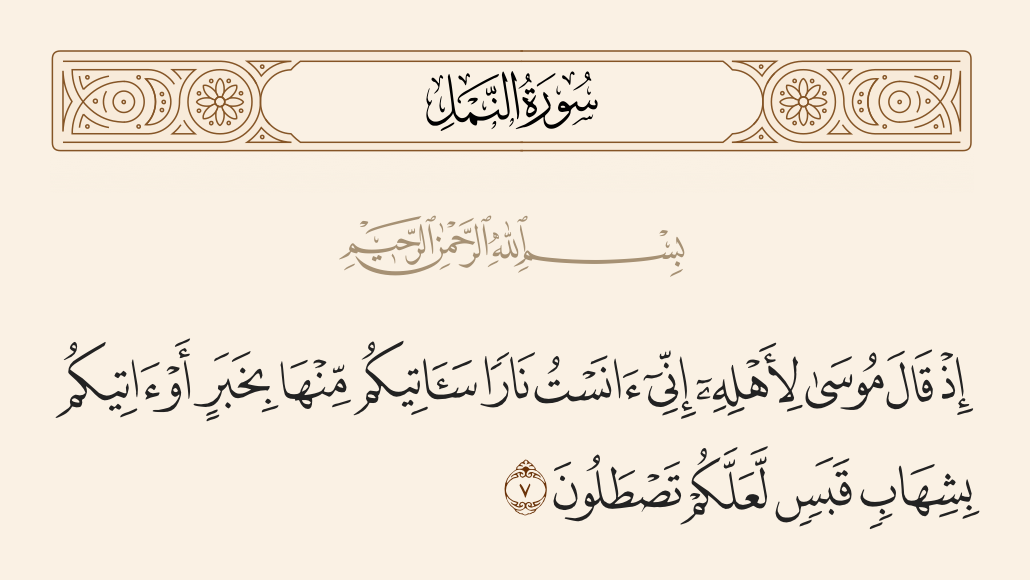 سُورَةُ النَّمْلِ
بِسْمِ ٱللَّهِ ٱلرَّحْمَٰنِ ٱلرَّحِيمِ
إِذْ قَالَ مُوسَىٰ لِأَهْلِهِۦٓ إِنِّىٓ ءَانَسْتُ نَارًا سَـَٔاتِيكُم مِّنْهَا بِخَبَرٍ أَوْ ءَاتِيكُم
بِشِهَابٍ قَبَسٍ لَّعَلَّكُمْ تَصْطَلُونَ ٧